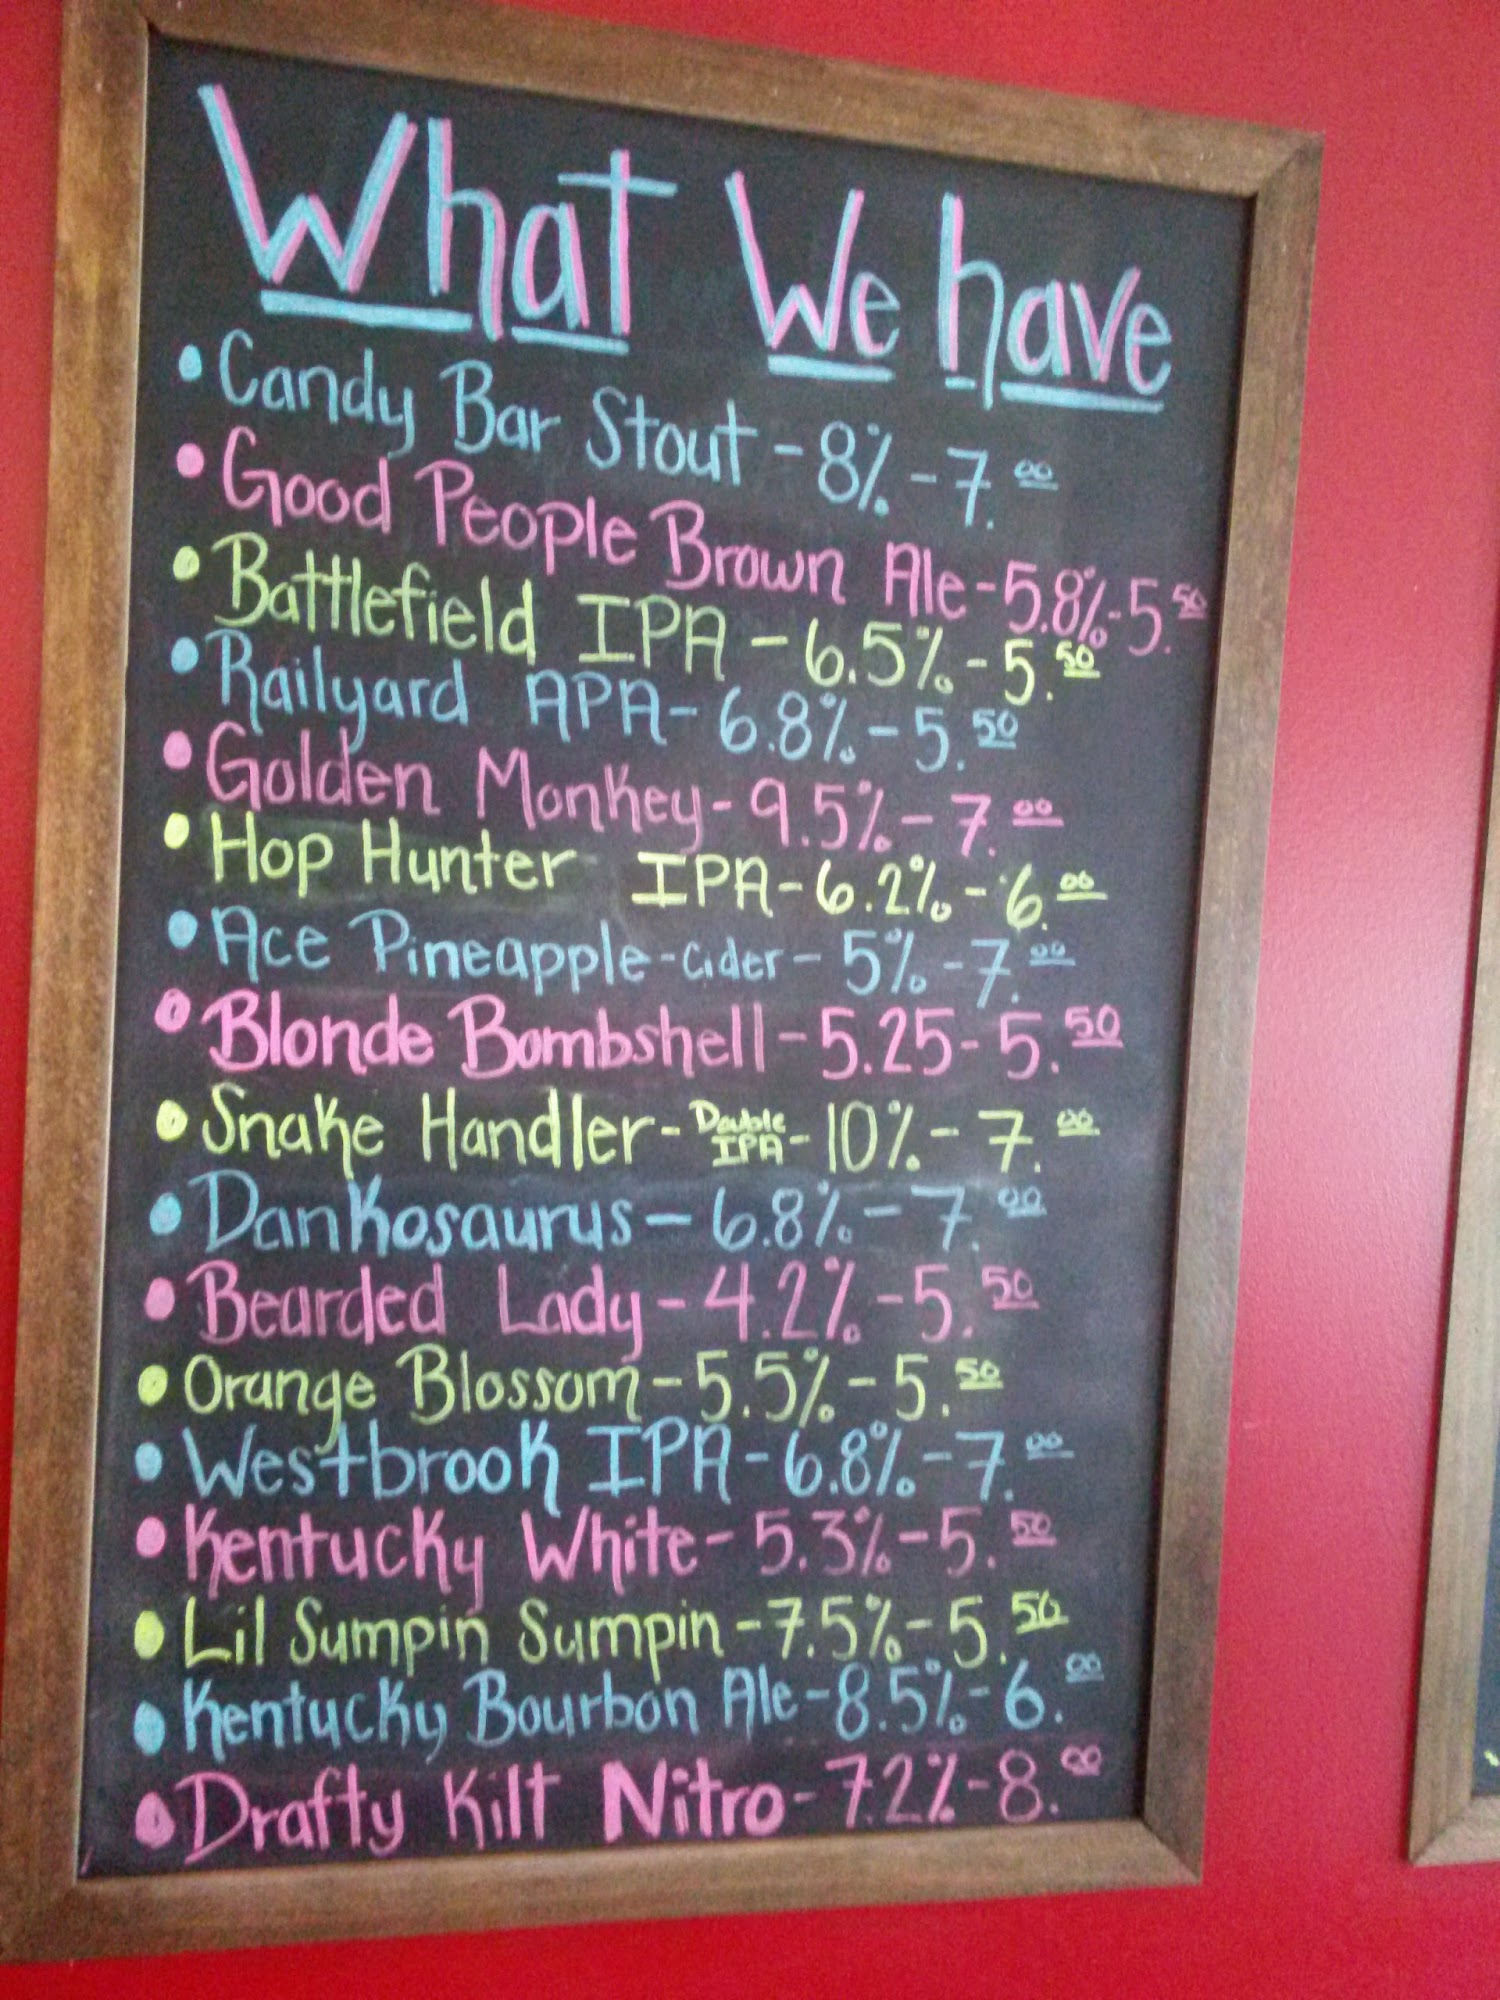 What We have
• Candy Bar Stout - 8% - 7.00
• Good People Brown Ale - 5.8% - 5.50
• Battlefield IPA - 6.5% - 5.50
• Railyard APA - 6.8% - 5.50
• Golden Monkey - 9.5% - 7.00
• Hop Hunter IPA - 6.2% - 6.00
• Ace Pineapple - Cider - 5% - 7.00
• Blonde Bombshell - 5.25 - 5.50
• Snake Handler - Double IPA - 10% - 7.00
• Dankosaurus - 6.8% - 7.00
• Bearded Lady - 4.2% - 5.50
• Orange Blossom - 5.5% - 5.50
• Westbrook IPA - 6.8% - 7.00
• Kentucky White - 5.3% - 5.50
• Lil Sumpin Sumpin - 7.5% - 5.50
• Kentucky Bourbon Ale - 8.5% - 6.00
• Drafty Kilt Nitro - 7.2% - 8.00